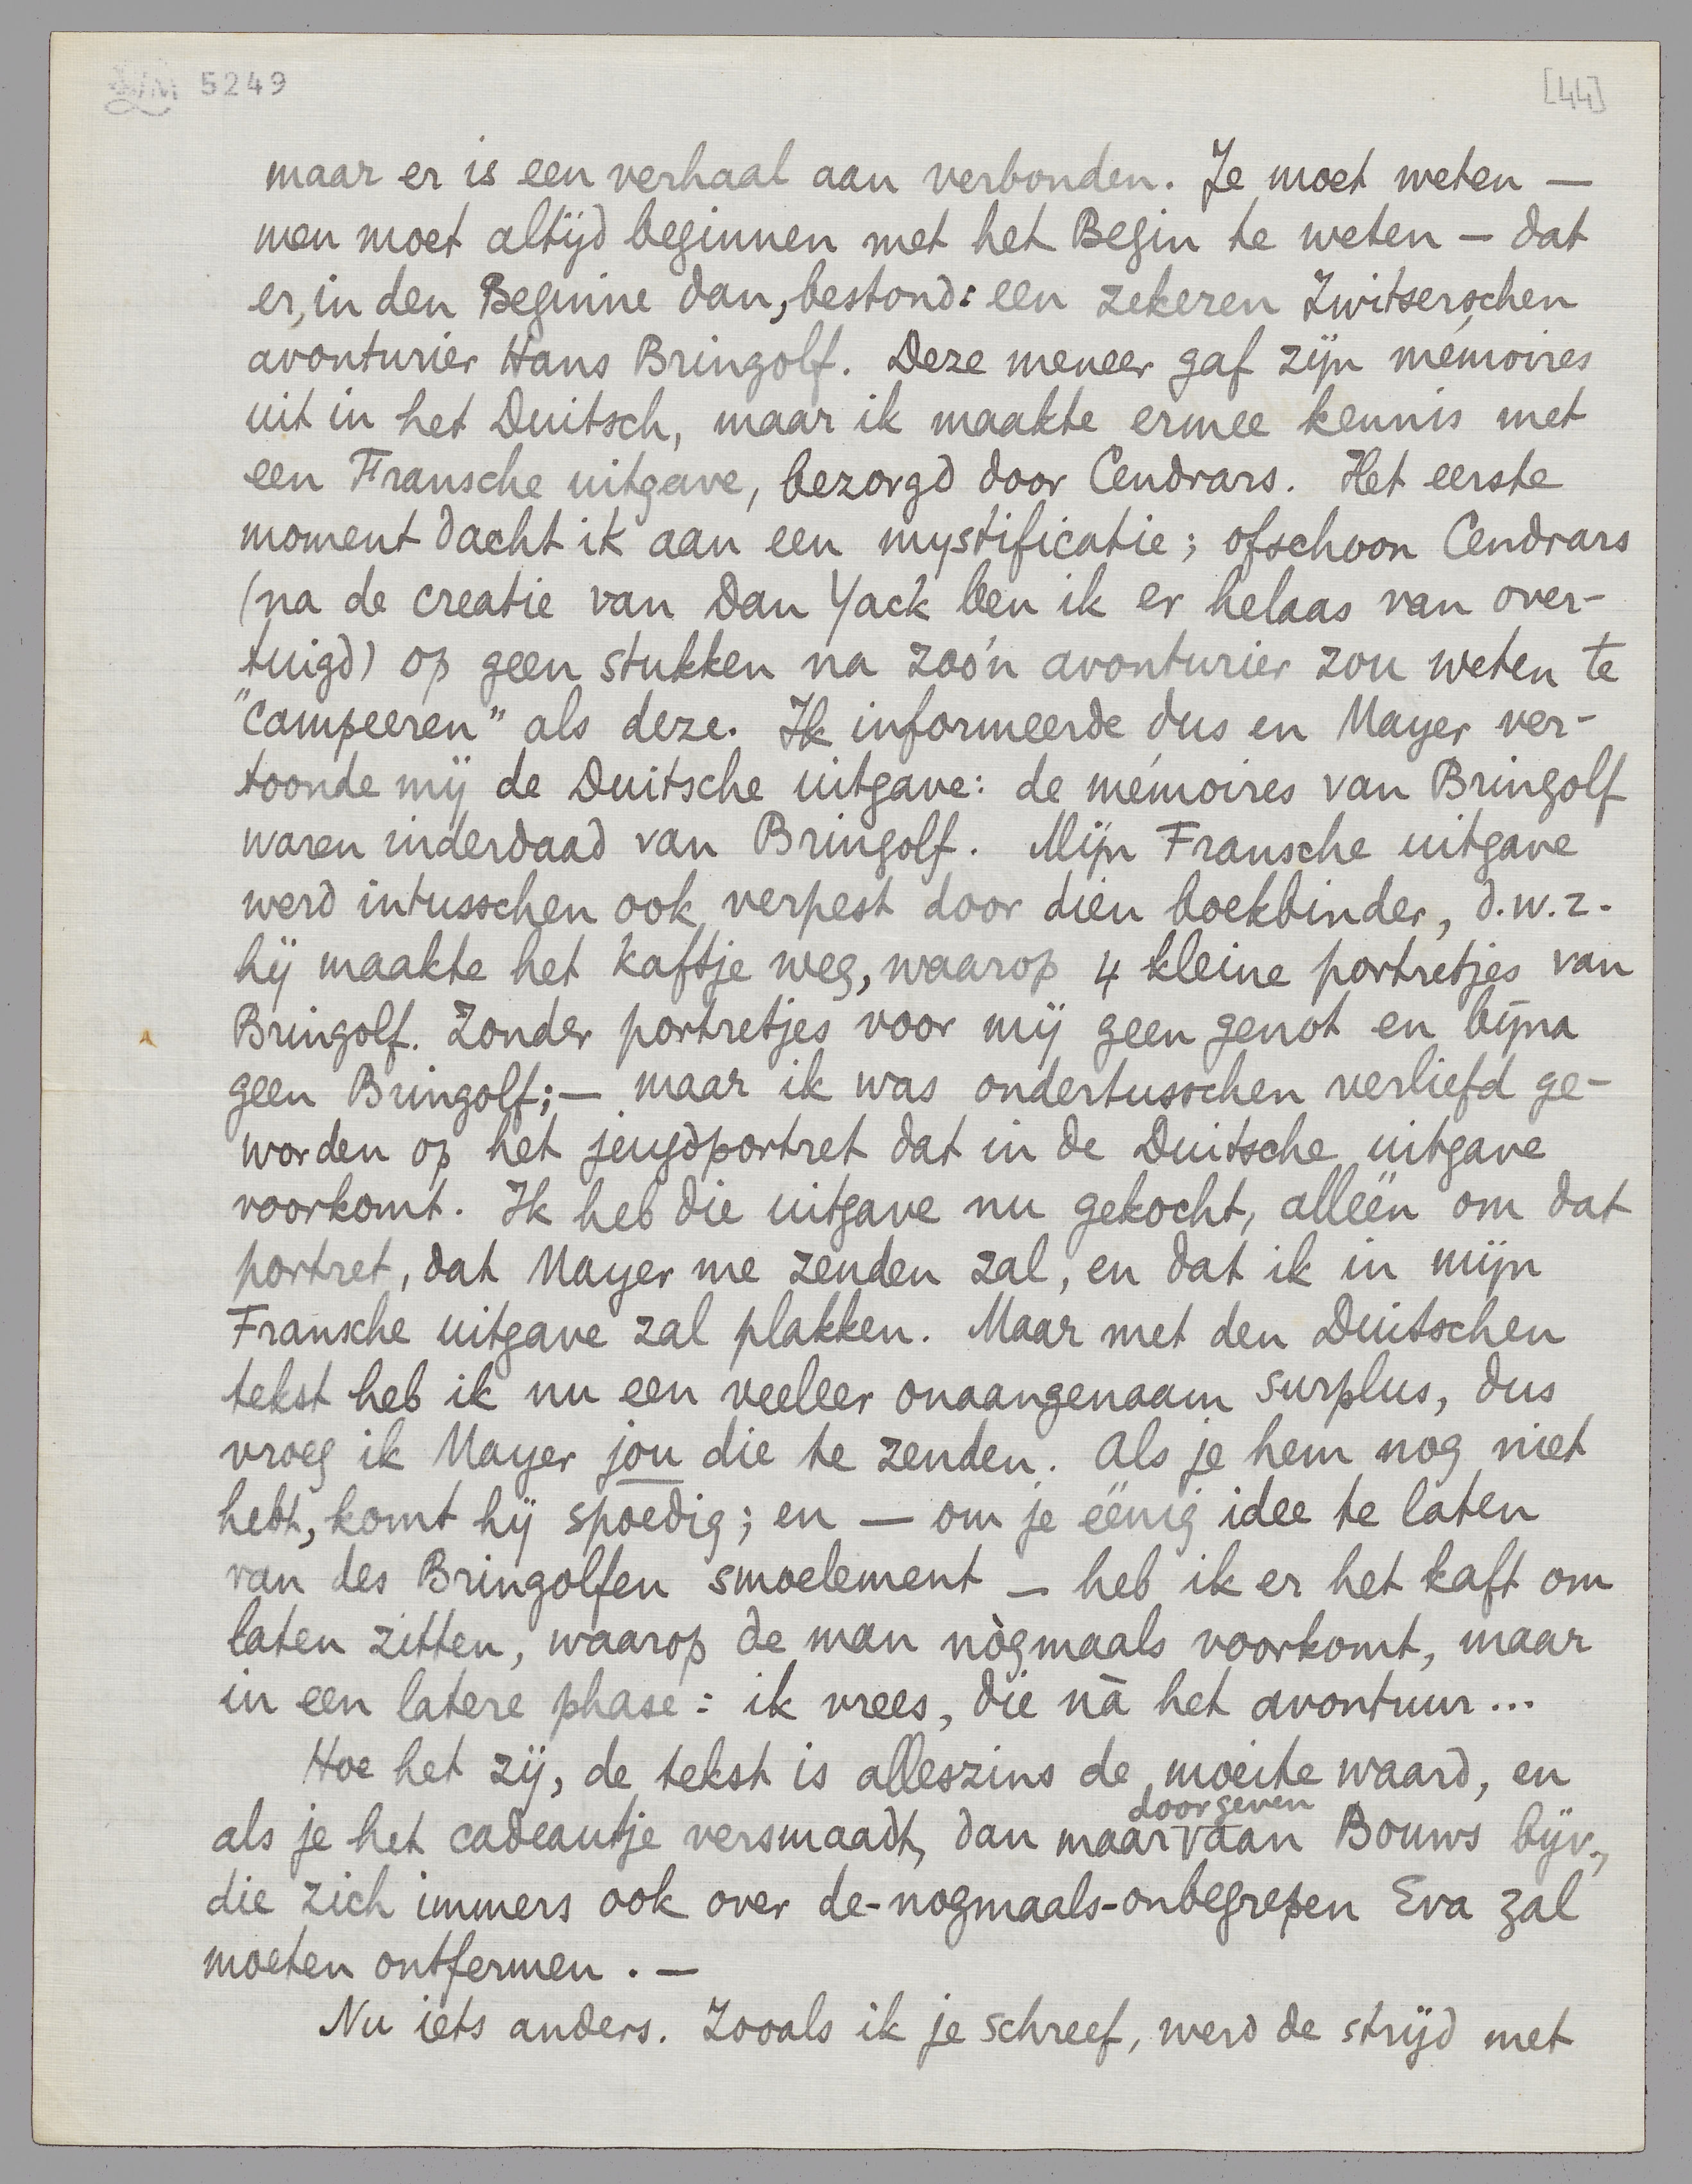 5249
[44]
maar er is een verhaal aan verbonden. Je moet weten —
men moet altijd beginnen met het Begin te weten — dat
er, in den Beginne dan, bestond: een zekeren Zwitserschen
avonturier Hans Bringolf. Deze meneer gaf zijn mémoires
uit in het Duitsch, maar ik maakte ermee kennis met
een Fransche uitgave, bezorgd door Cendrars. Het eerste
moment dacht ik aan een mystificatie; ofschoon Cendrars
(na de creatie van Dan Yack ben ik er helaas van over-
tuigd) op geen stukken na zoo'n avonturier zou weten te
"campeeren" als deze. Ik informeerde dus en Mayer ver-
toonde mij de Duitsche uitgave: de mémoires van Bringolf
waren inderdaad van Bringolf. Mijn Fransche uitgave
werd intusschen ook verpest door dien boekbinder, d.w.z.
hij maakte het kaftje weg, waarop 4 kleine portretjes van
Bringolf. Zonder portretjes voor mij geen genot en bijna
geen Bringolf; — maar ik was ondertusschen verliefd ge-
worden op het jeugdportret dat in de Duitsche uitgave
voorkomt. Ik heb die uitgave nu gekocht, alleen om dat
portret, dat Mayer me zenden zal, en dat ik in mijn
Fransche uitgave zal plakken. Maar met den Duitschen
tekst heb ik nu een veeleer onaangenaam surplus, dus
vroeg ik Mayer jou die te zenden. Als je hem nog niet
hebt, komt hij spoedig; en — om je eënig idee te laten
van des Bringolfen smoelement — heb ik er het kaft om
laten zitten, waarop de man nògmaals voorkomt, maar
in een latere phase: ik vrees, die nà het avontuur...
Hoe het zij, de tekst is alleszins de moeite waard, en
doorgeven
als je het cadeautje versmaadt, dan maar aan Bouws bijv.,
die zich immers ook over de-nogmaals-onbegrepen Eva zal
moeten ontfermen. —
Nu iets anders. Zooals ik je schreef, werd de strijd met